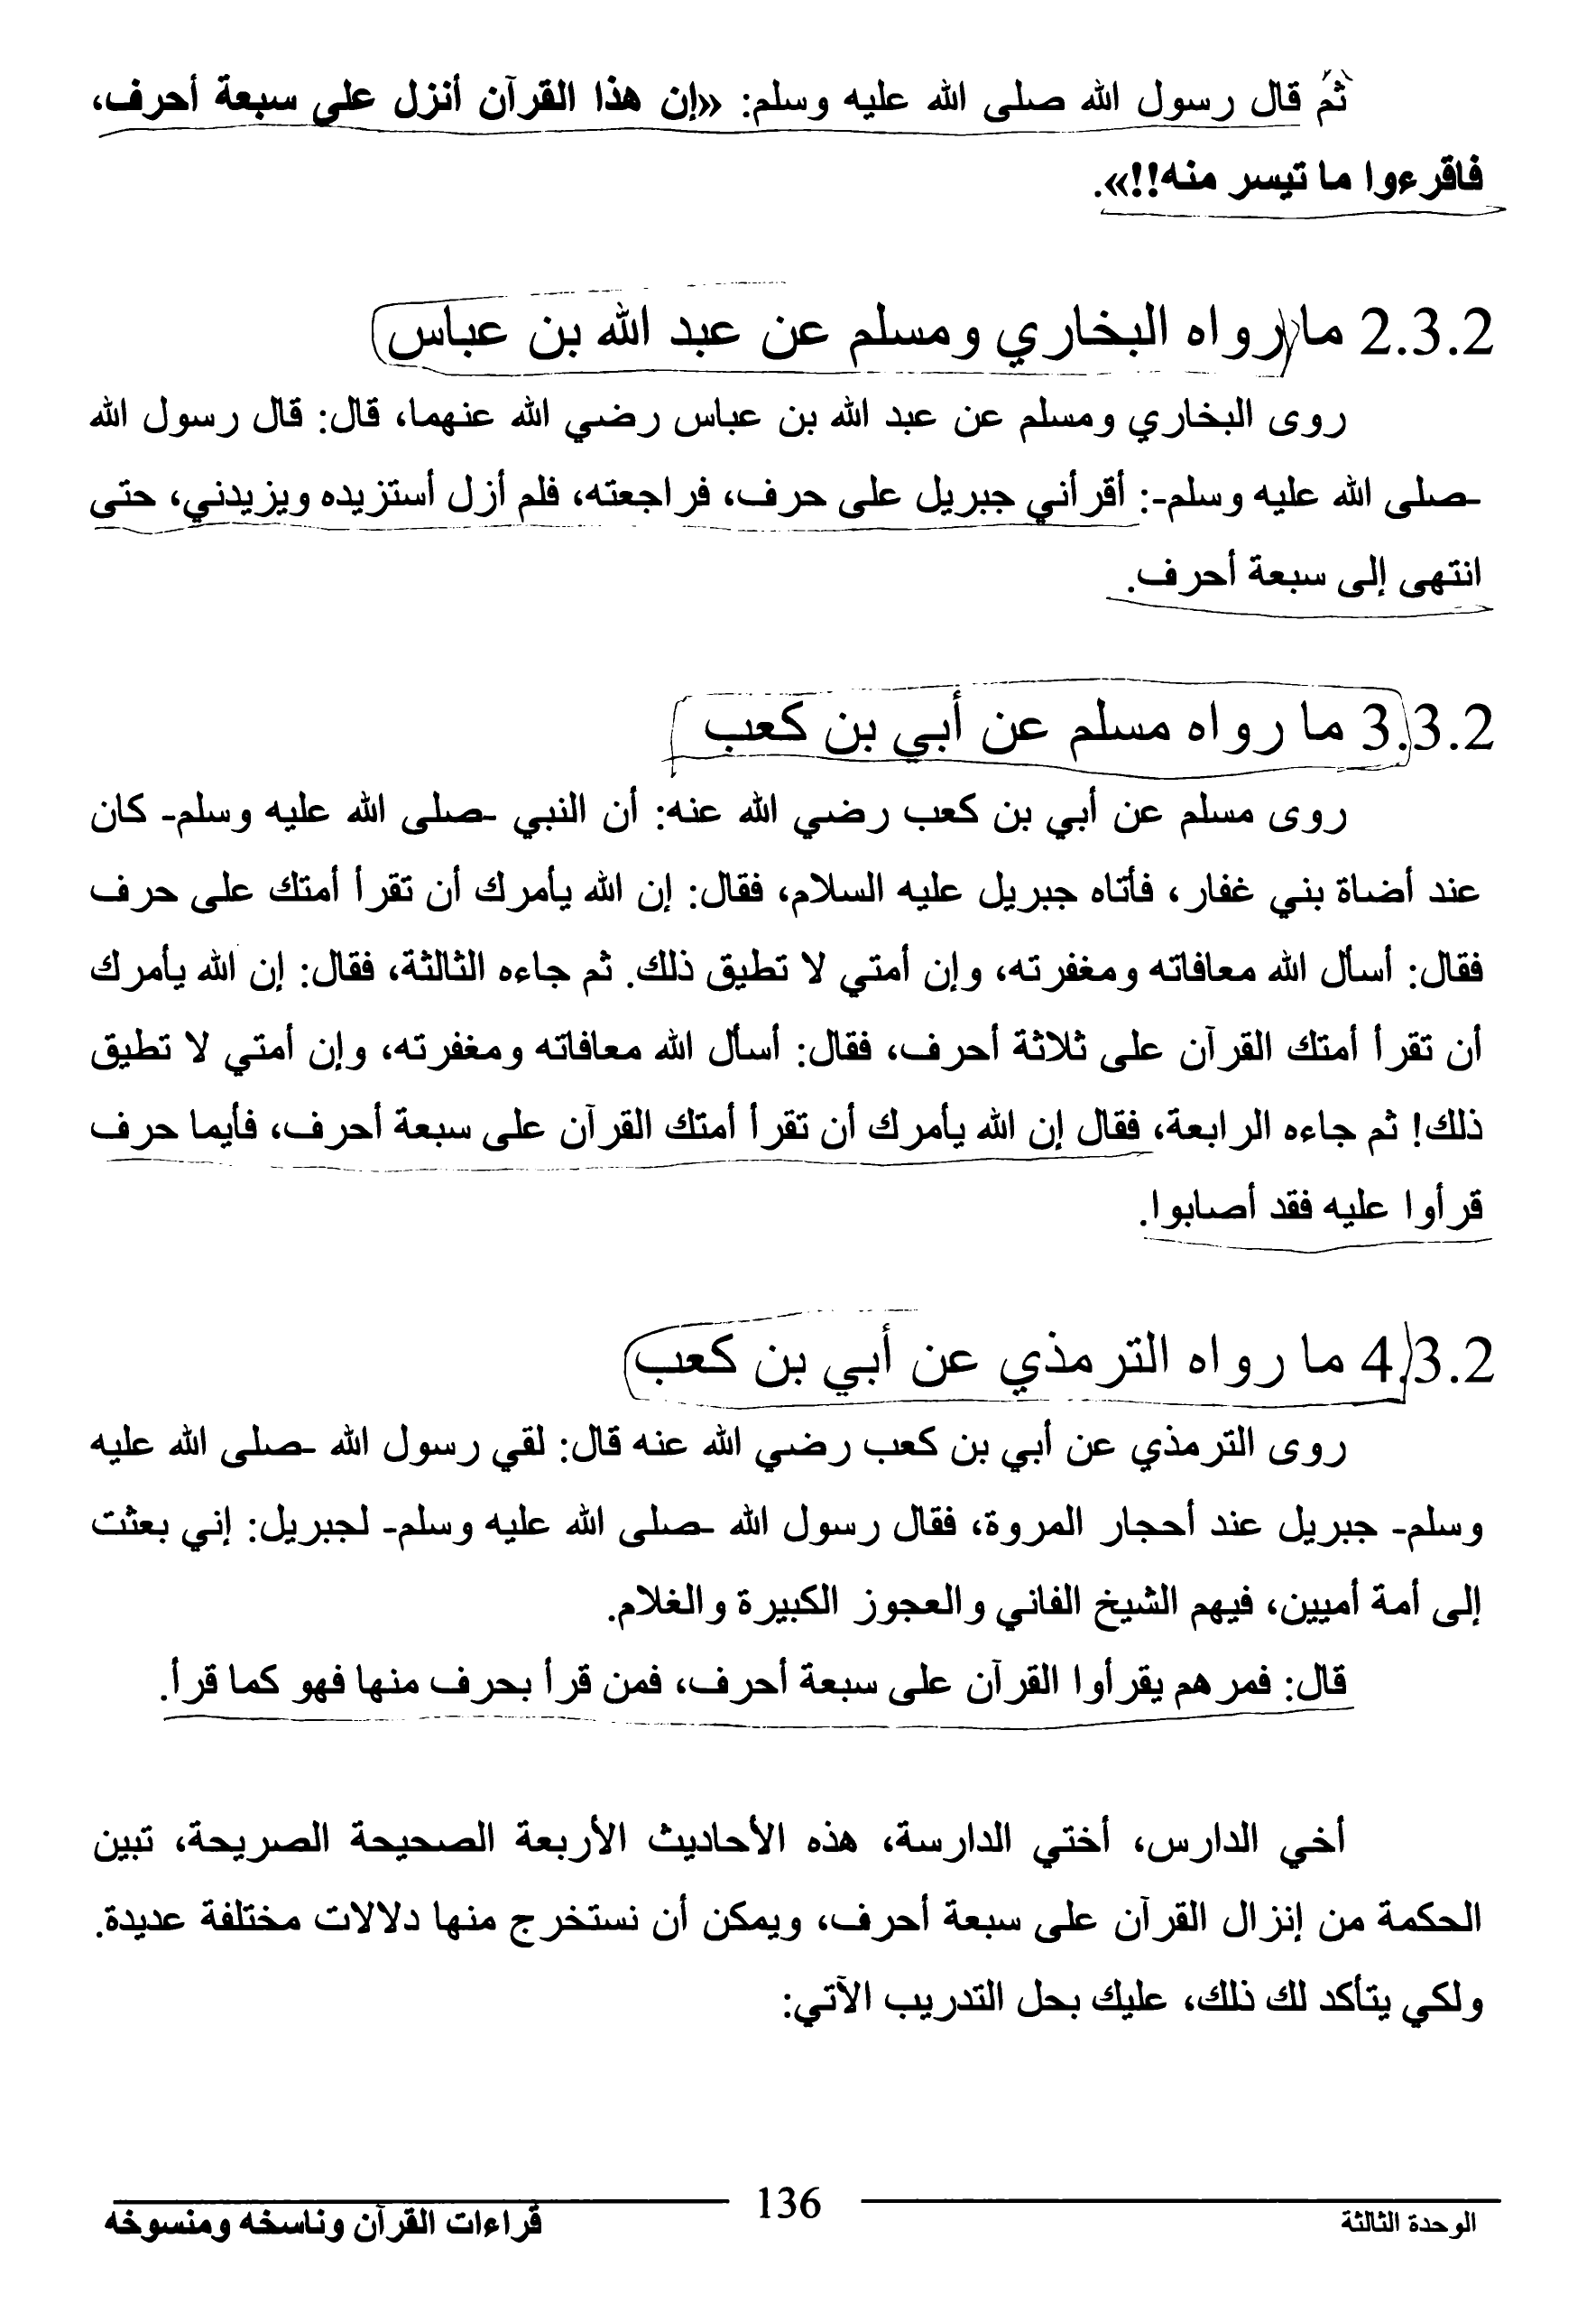 ثمّ قال رسول الله صلى الله عليه وسلم: «إن هذا القرآن أنزل على سبعة أحرف،
فاقرءوا ما تيسر منه!!».
2.3.2 ما رواه البخاري ومسلم عن عبد الله بن عباس
روى البخاري ومسلم عن عبد الله بن عباس رضي الله عنهما، قال: قال رسول الله
-صلى الله عليه وسلم-: أقرأني جبريل على حرف، فراجعته، فلم أزل أستزيده ويزيدني، حتى
انتهى إلى سبعة أحرف.
3.3.2 ما رواه مسلم عن أبي بن كعب
روى مسلم عن أبي بن كعب رضي الله عنه: أن النبي -صلى الله عليه وسلم- كان
عند أضاة بني غفار، فأتاه جبريل عليه السلام، فقال: إن الله يأمرك أن تقرأ أمتك على حرف
فقال: أسأل الله معافاته ومغفرته، وإن أمتي لا تطيق ذلك. ثم جاءه الثالثة، فقال: إن الله يأمرك
أن تقرأ أمتك القرآن على ثلاثة أحرف، فقال: أسأل الله معافاته ومغفرته، وإن أمتي لا تطيق
ذلك! ثم جاءه الرابعة، فقال إن الله يأمرك أن تقرأ أمتك القرآن على سبعة أحرف، فأيما حرف
قرأوا عليه فقد أصابوا.
4.3.2 ما رواه الترمذي عن أبي بن كعب
روى الترمذي عن أبي بن كعب رضي الله عنه قال: لقي رسول الله -صلى الله عليه
وسلم- جبريل عند أحجار المروة، فقال رسول الله -صلى الله عليه وسلم- لجبريل: إني بعثت
إلى أمة أميين، فيهم الشيخ الفاني والعجوز الكبيرة والغلام.
قال: فمرهم يقرأوا القرآن على سبعة أحرف، فمن قرأ بحرف منها فهو كما قرأ.
أخي الدارس، أختي الدارسة، هذه الأحاديث الأربعة الصحيحة الصريحة، تبين
الحكمة من إنزال القرآن على سبعة أحرف، ويمكن أن نستخرج منها دلالات مختلفة عديدة.
ولكي يتأكد لك ذلك، عليك بحل التدريب الآتي:
الوحدة الثالثة 136 قراءات القرآن وناسخه ومنسوخه